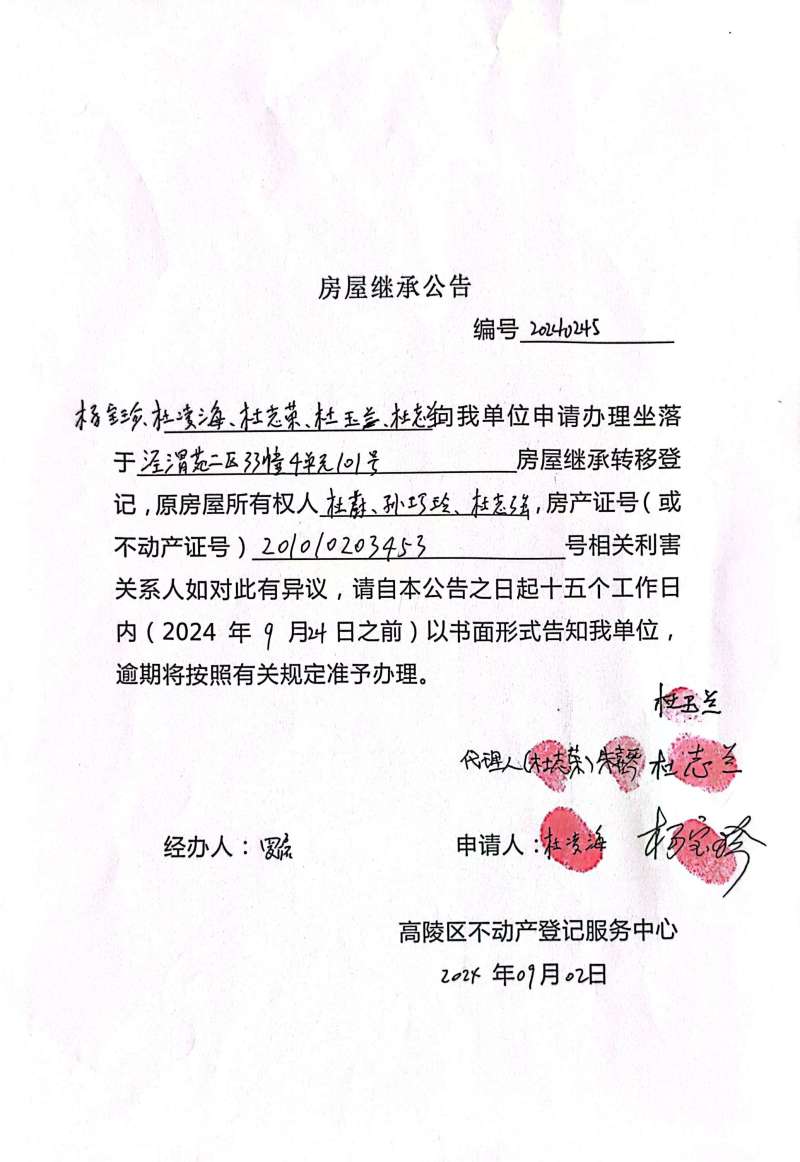 房屋继承公告
编号 20240245
杨宝珍、杜凌海、杜志荣、杜玉兰、杜志兰向我单位申请办理坐落
于泾渭苑二区33幢4单元101号 房屋继承转移登
记，原房屋所有权人杜森、孙巧玲、杜志强，房产证号（或
不动产证号）201010203453 号相关利害
关系人如对此有异议，请自本公告之日起十五个工作日
内（2024 年 9 月24 日之前）以书面形式告知我单位，
逾期将按照有关规定准予办理。
杜玉兰
代理人(杜志荣) 朱 杜志兰
经办人： 申请人：杜凌海 杨宝珍
高陵区不动产登记服务中心
2024 年09月02日